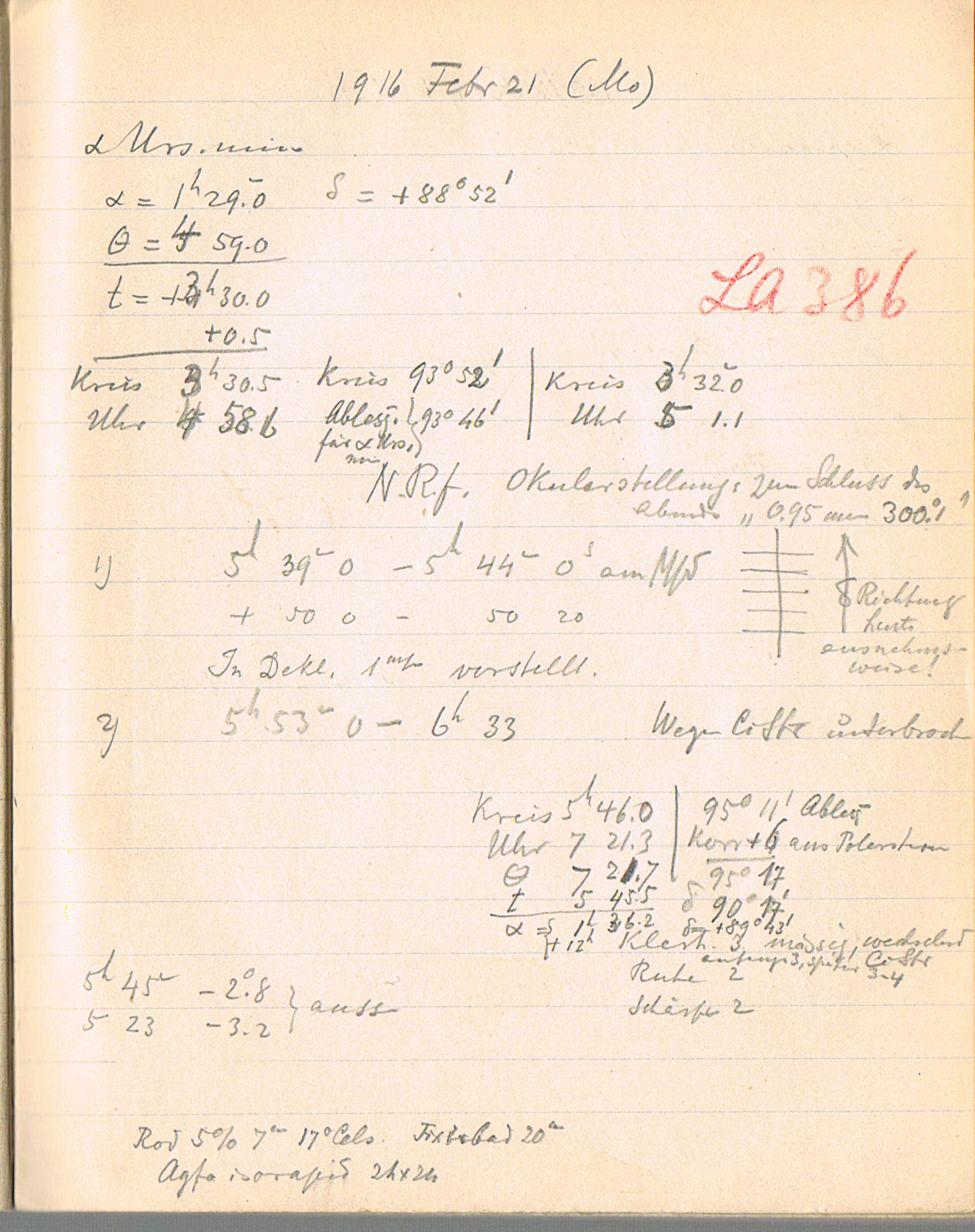 1916 Febr 21 (Mo)
α Urs. min
α = 1ʰ 29ᵐ.0 δ = +88° 52'
θ = 4 59.0
t = +3ʰ 30.0
+0.5
LA 386
Kreis 3ʰ 30.5 Kreis 93° 52' Kreis 3ʰ 32ᵐ.0
Uhr 4 58.6 Ables. 93° 46' Uhr 5 1.1
für α Urs.
min
N.P.f. Okularstellung: zum Schluss des
Abends „ 0.95 mm 300.°1
1) 5ʰ 39ᵐ 0 – 5ʰ 44ᵐ 0ˢ am
+ 50 0 – 50 20
Richtung
heute
ausnahms-
weise!
In Dekl. 1 verstellt.
2) 5ʰ 53ᵐ 0 – 6ʰ 33 Wegen CiStr unterbroch
Kreis 5ʰ 46.0 95° 11' Ables
Uhr 7 21.3 Korr +6 aus Polarstern
θ 7 21.7 95° 17
t 5 45.5 δ 90° 17'
α = 1ʰ 36.2 δ = +89° 43'
+ 12ʰ Klarh. 3 mässig, wechselnd
anfangs 3, später CiStr 3-4
Ruhe 2
Schärfe 2
5ʰ 45ᵐ – 2°.8
5 23 – 3.2 } aussen
Rod 5% 7ᵐ 17° Cels. Fixierbad 20ᵐ
Agfa isorapid 24x24